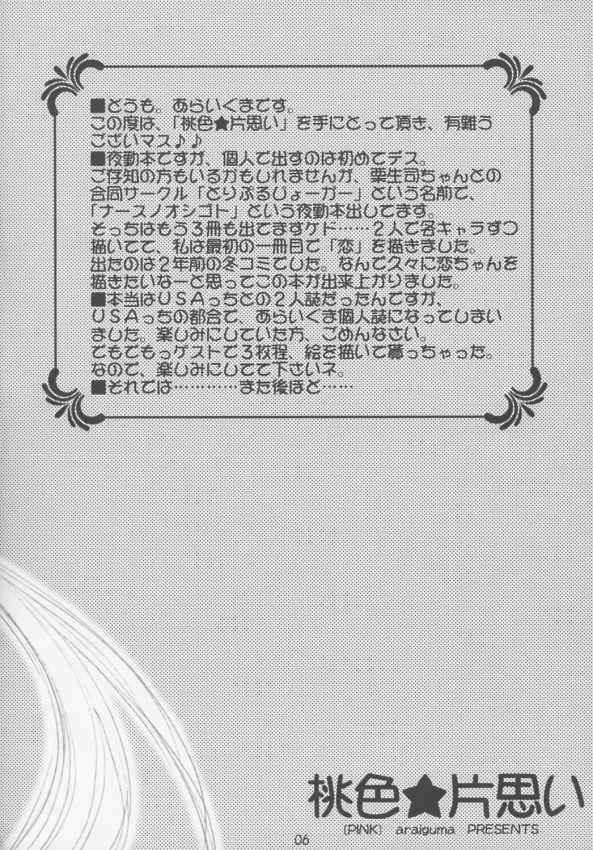 ■どうも。あらいぐまです。
この度は、「桃色★片思い」を手にとって頂き、有難う
ございマス♪♪
■夜勤本ですが、個人で出すのは初めてデス。
ご存知の方もいるかもしれませんが、栗生司ちゃんとの
合同サークル「とりぷるじょーカー」という名前で、
「ナースノオシゴト」という夜勤本出してます。
そっちはもう3冊も出てますケド……2人で各キャラずつ
描いてて、私は最初の一冊目で「恋」を描きました。
出たのは2年前の冬コミでした。なんで久々に恋ちゃんを
描きたいなーと思ってこの本が出来上がりました。
■本当はUSAっちとの2人誌だったんですが、
USAっちの都合で、あらいぐま個人誌になってしまい
ました。楽しみにしていた方、ごめんなさい。
でもでもっゲストで3枚程、絵を描いて貰っちゃった。
なので、楽しみにしてて下さいネ。
■それでは…………また後ほど……
桃色★片思い
(PINK) araiguma PRESENTS
06